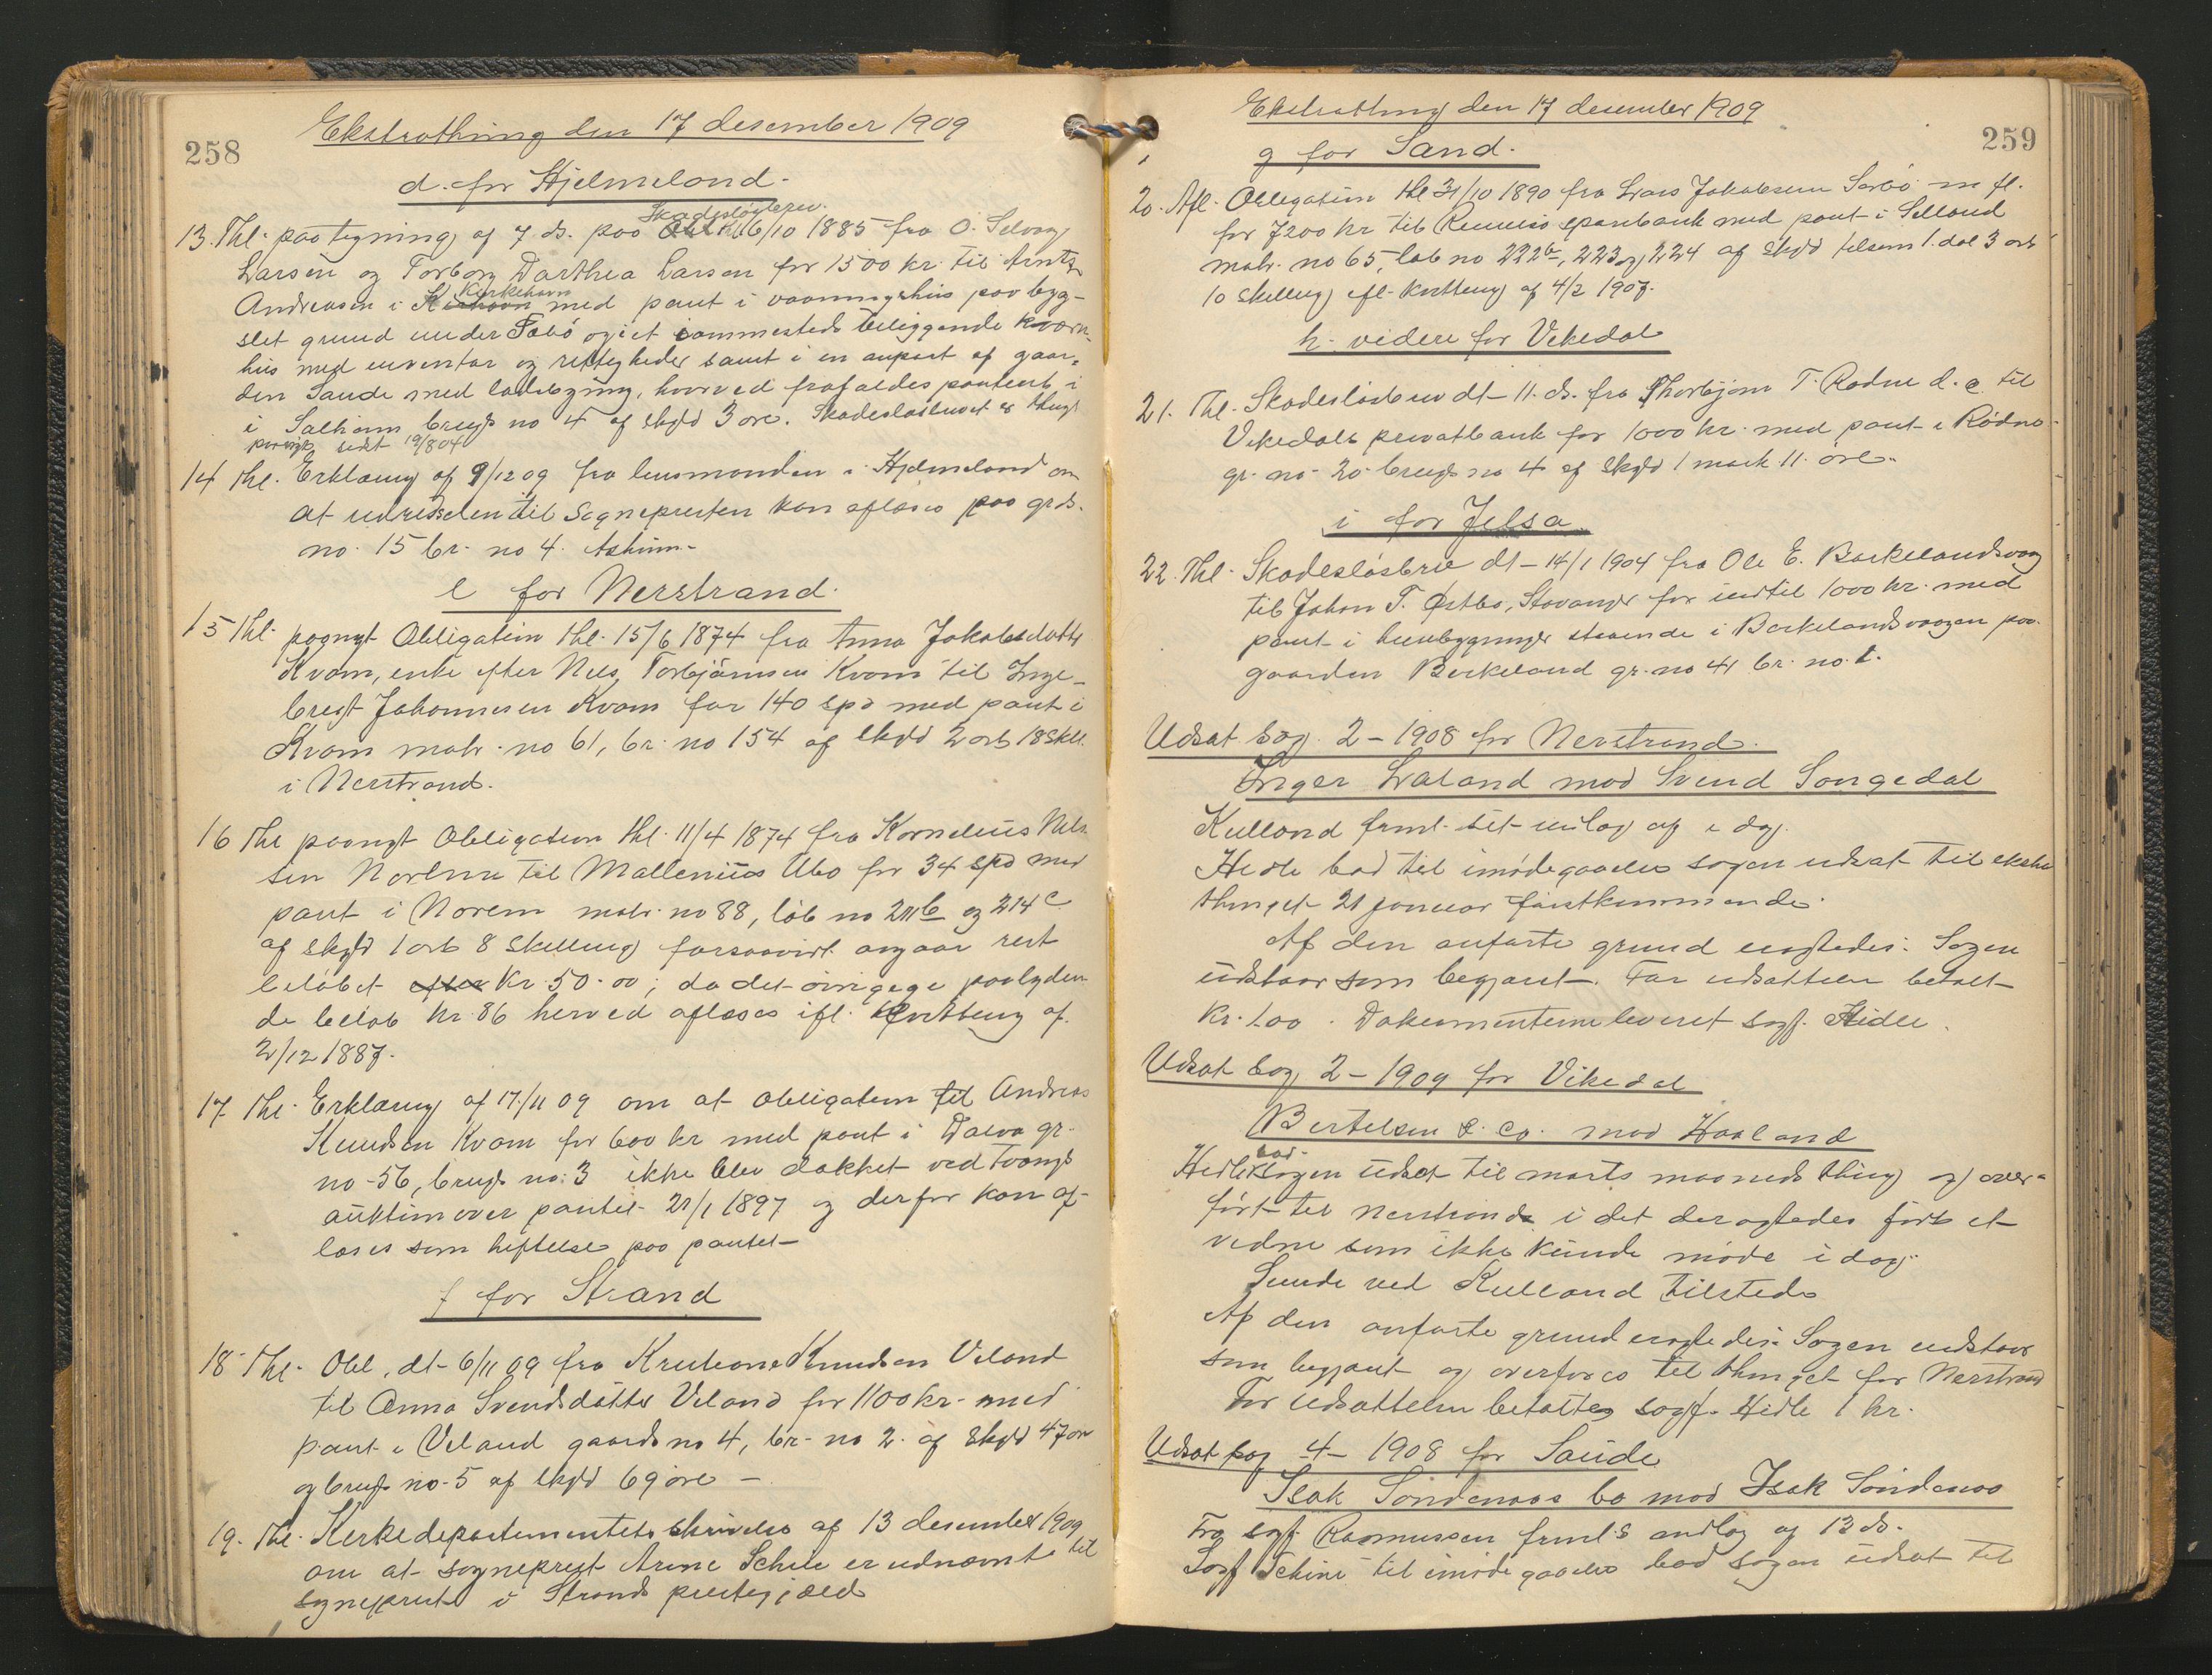 258
Ekstrathing den 17 desember 1909
d. for Hjelmeland.
Skadesløsbrev.
13. Thl. paategning af 7 ds. paa Obl. thl. 6/10 1885 fra O. Selvaag
Larsen og Torborg Dorthea Larsen for 1500 kr. til
Kirkehavn
Andreasen i med pant i vaaningshus paa byg-
slet grund under Tøbø og i et sammesteds beliggende kværn-
hus med inventar og rettigheder samt i en anpart af gaar-
den Sande med frafaldes panteret i
i Salhøien brugs no 4 af skyld 3 øre. Skadesløsbrevet er thingl
paanyt sidst 19/8 04
14 Thl. Erklæring af 9/12 09 fra lensmanden i Hjelmeland om
at til Sognepresten kan aflæses paa grds.
no. 15 br. no 4.
e for Nerstrand.
15 Thl. paanyt Obligation thl. 15/6 1874 fra Anna Jakobsdatter
Kvam, enke efter Nils Torbjørnsen Kvam til Inge-
bregt Johannesen Kvam for 140 spd med pant i
Kvam matr. no 61, br. no 154 af skyld 2 ort 18 skill.
i Nerstrand.
16 Thl paanyt Obligation thl. 11/4 1874 fra Kornelius Nils-
sen Norem til Mallenius Ubo for 34 spd med
pant i Norem matr. no 88, løb no 211b og 214c
af skyld 1 ort 8 skilling forsaavidt angaar rest
beløbet efter kr. 50.00; da det øvrige paalyden-
de beløb kr. 86 herved aflæses ifl. kvittering af
2/12 1887.
17 Thl. Erklæring af 17/11 09 om at obligation til Andreas
Knudsen Kvam for 600 kr med pant i gr.
no 56, brugs no. 3 ikke blev dækket ved tvangs
auktion over pantet 21/1 1897 og derfor kan af-
læses som heftelse paa pantet
f for Strand
18 Thl. Obl. dt. 6/11 09 fra Kristiane Knudsen Veland
til Anna Svendsdatter Veland for 1100 kr. med
pant i Veland gaards no 4, br. no 2. af skyld 47 øre
og brugs no. 5 af skyld 69 øre –
19. Thl. Kirkedepartementets skrivelse af 13 desember 1909
om at sogneprest Arne er udnævnt til
sogneprest i Strands prestegjæld
259
Ekstrathing den 17 desember 1909
g for Sand.
20. Afl. Obligation thl 31/10 1890 fra Lars Jakobsen m fl.
for 7200 kr til Rennesø sparebank med pant i Selland
matr. no 65, løb no 222b, 223 og 224 af skyld tilsam 1 dal 3 ort
10 skilling ifl. kvittering af 4/2 1907.
h. videre for Vikedal
21. Thl. Skadesløsbrev dt. 11. ds. fra Thorbjørn T. Rødne d. e. til
Vikedals privatbank for 1000 kr. med pant i Rødne
gr. no. 20 brugs no 4 af skyld 1 mark 11 øre.
i for Jelsa
22. Thl. Skadesløsbrev dt. 14/1 1904 fra Ole E. Barkelandsvaag
til Johan T. Østbø, Stavanger for indtil 1000 kr. med
pant i husebygninger staaende i Berkelandsvaagen paa
gaarden Berkeland gr. no 41 br. no. 1.
Udsat sag 2 – 1908 for Nerstrand.
Inger Lraland mod Svend Songedal
Kulland frml. set inlæg af i dag.
Hidle bad til imødegaaelse sagen udsat til ekstra
thinget 21 januar førstkommende.
Af den anførte grund eragtedes: Sagen
udstaar som begjært. For udsættelsen betalt
kr. 1.00. Dokumenterne leveret sagf. Hidle.
Udsat sag 2 – 1909 for Vikedal
Bertelsen & Co. mod Haaland
bad
Hidle sagen udsat til marts maaneds thing og over-
ført til Nerstrand i det der agtedes ført et
vidne som ikke kunde møde i dag.
Sunde ved Kulland tilstede
Af den anførte grund eragtedes: Sagen udstaar
som begjært og overføres til thinget for Nerstrand
For udsættelsen betaltes sagf. Hidle 1 kr.
Udsat sag 4 – 1908 for Saude
Isak Søndenaas bo mod Isak Søndenaa
Fra sagf. Rasmussen frml. s indlæg af 13 ds.
Sagf til imødegaaelse bad sagen udsat til